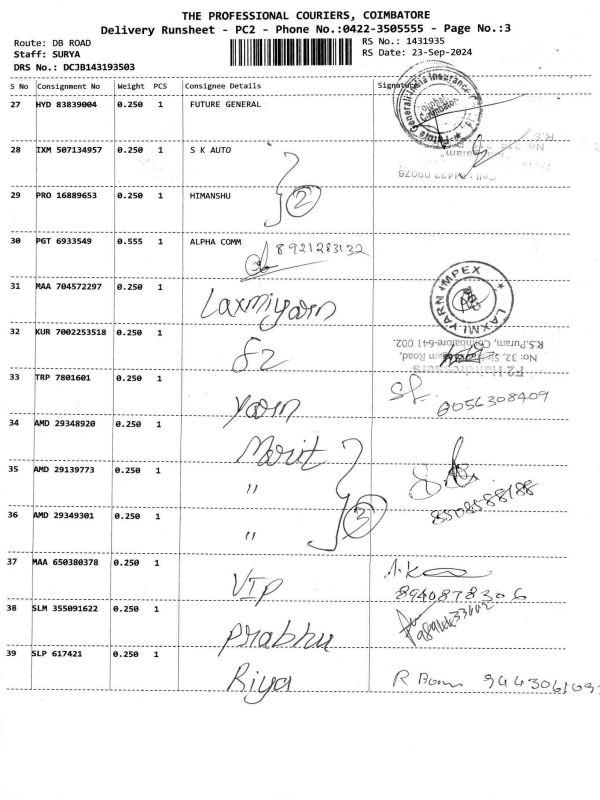 THE PROFESSIONAL COURIERS, COIMBATORE
Delivery Runsheet - PC2 - Phone No.:0422-3505555 - Page No.:3
Route: DB ROAD
RS No.: 1431935
Staff: SURYA
RS Date: 23-Sep-2024
DRS No.: DCJB143193503
S No Consignment No Weight PCS Consignee Details Signature
27 HYD 83839004 0.250 1 FUTURE GENERAL
28 IXM 507134957 0.250 1 S K AUTO
29 PRO 16889653 0.250 1 HIMANSHU
2
30 PGT 6933549 0.555 1 ALPHA COMM 8921283132
31 MAA 704572297 0.250 1 Laxmiyarn
LAXMI YARN IMPEX
32 KUR 7002253518 0.250 1 F2
R.S.Puram, Coimbatore-641 002.
F2 Hairdressers
33 TRP 7801601 0.250 1 yarn
8056308409
34 AMD 29348920 0.250 1 Morit
35 AMD 29139773 0.250 1 "
8508588188
36 AMD 29349301 0.250 1 "
3
37 MAA 650380378 0.250 1 VIP
8940878306
38 SLM 355091622 0.250 1 Prabhu
39 SLP 617421 0.250 1 Riya